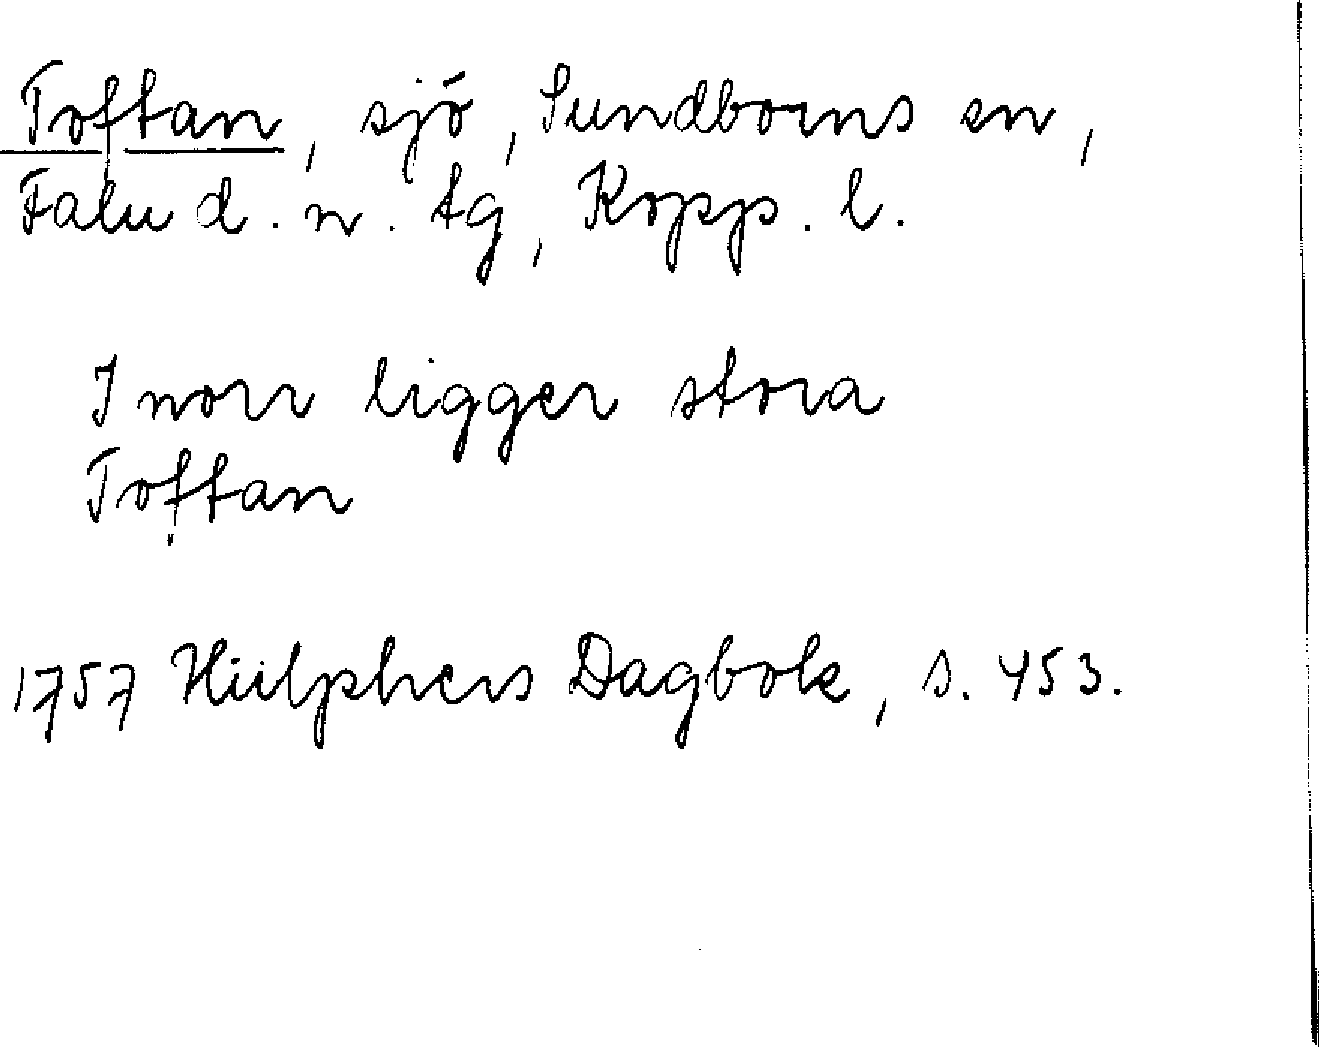 Toftan, sjö, Sundborns sn,
Falu d. n. tg, Kopp. l.
I norr ligger stora
Toftan
1757 Hülphers Dagbok, s. 453.